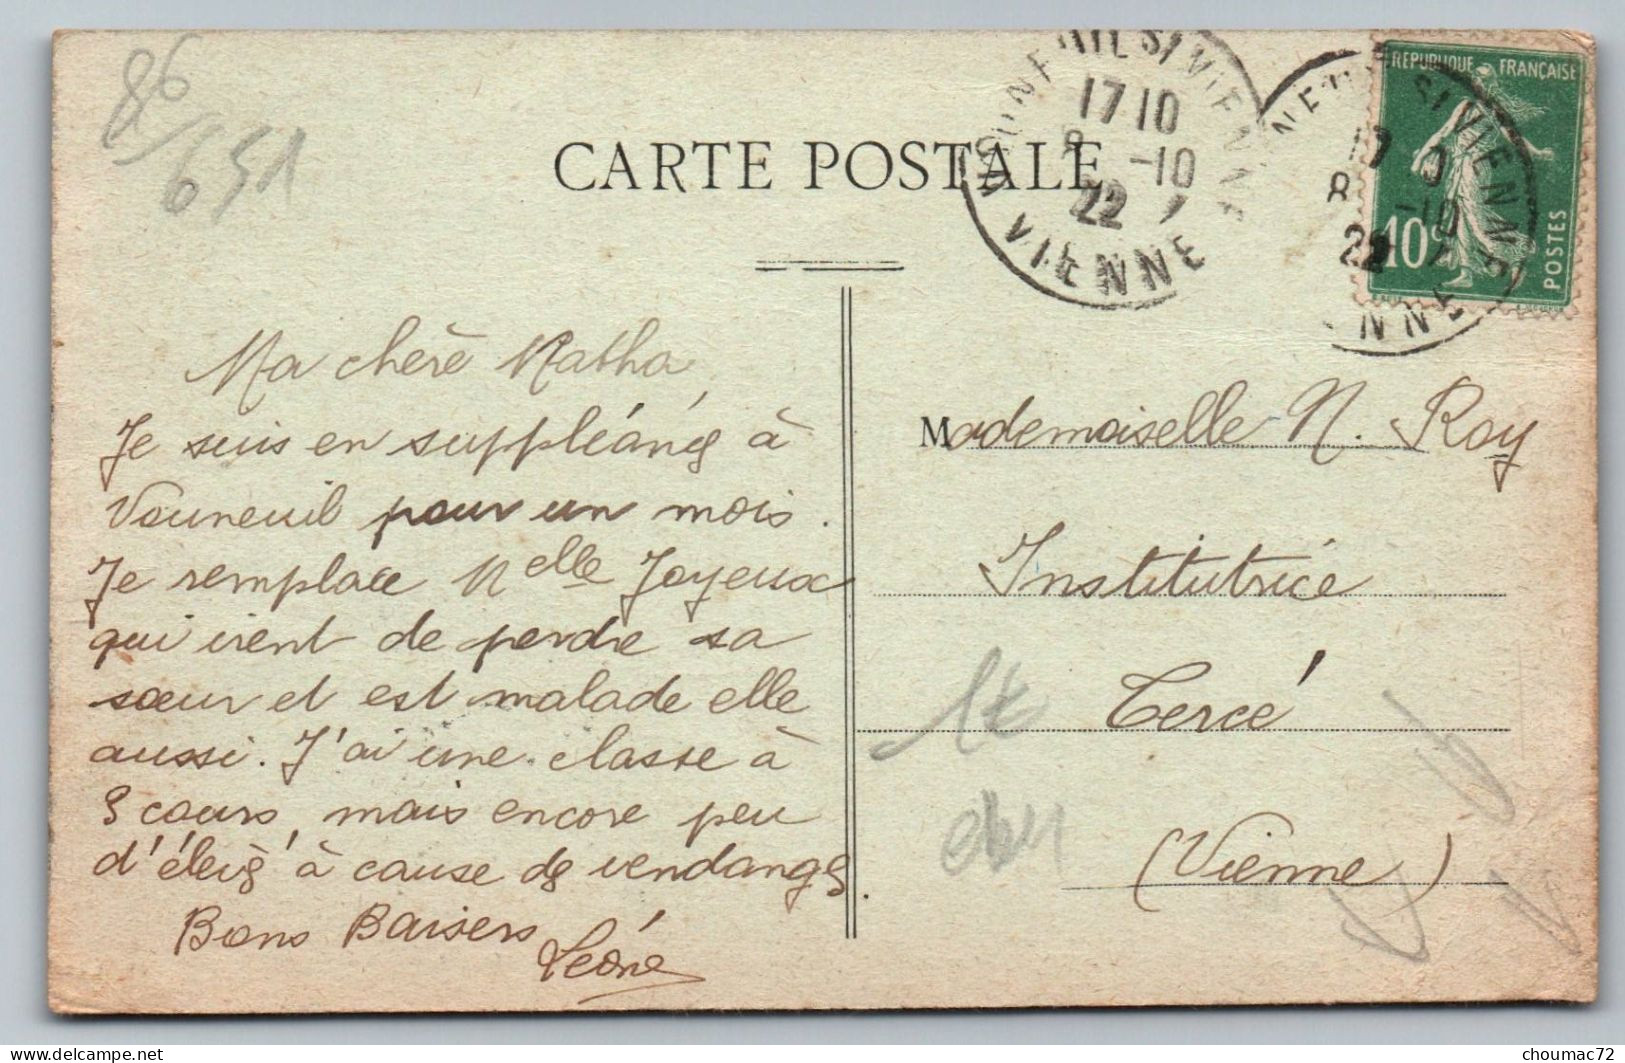 86/651
CARTE POSTALE
VOUNEUIL S/ VIENNE
17 10
8 -10
22
VIENNE
REPUBLIQUE FRANÇAISE
10c
POSTES
Ma chère Natha,
Je suis en suppléance à
Vouneuil pour un mois.
Je remplace Melle Joyeux
qui vient de perdre sa
sœur et est malade elle
aussi. J'ai une classe à
3 cours, mais encore peu
d'élèves à cause des vendanges.
Bons Baisers
Léone
Mademoiselle N. Roy
Institutrice
Tercé
(Vienne)
choumac72